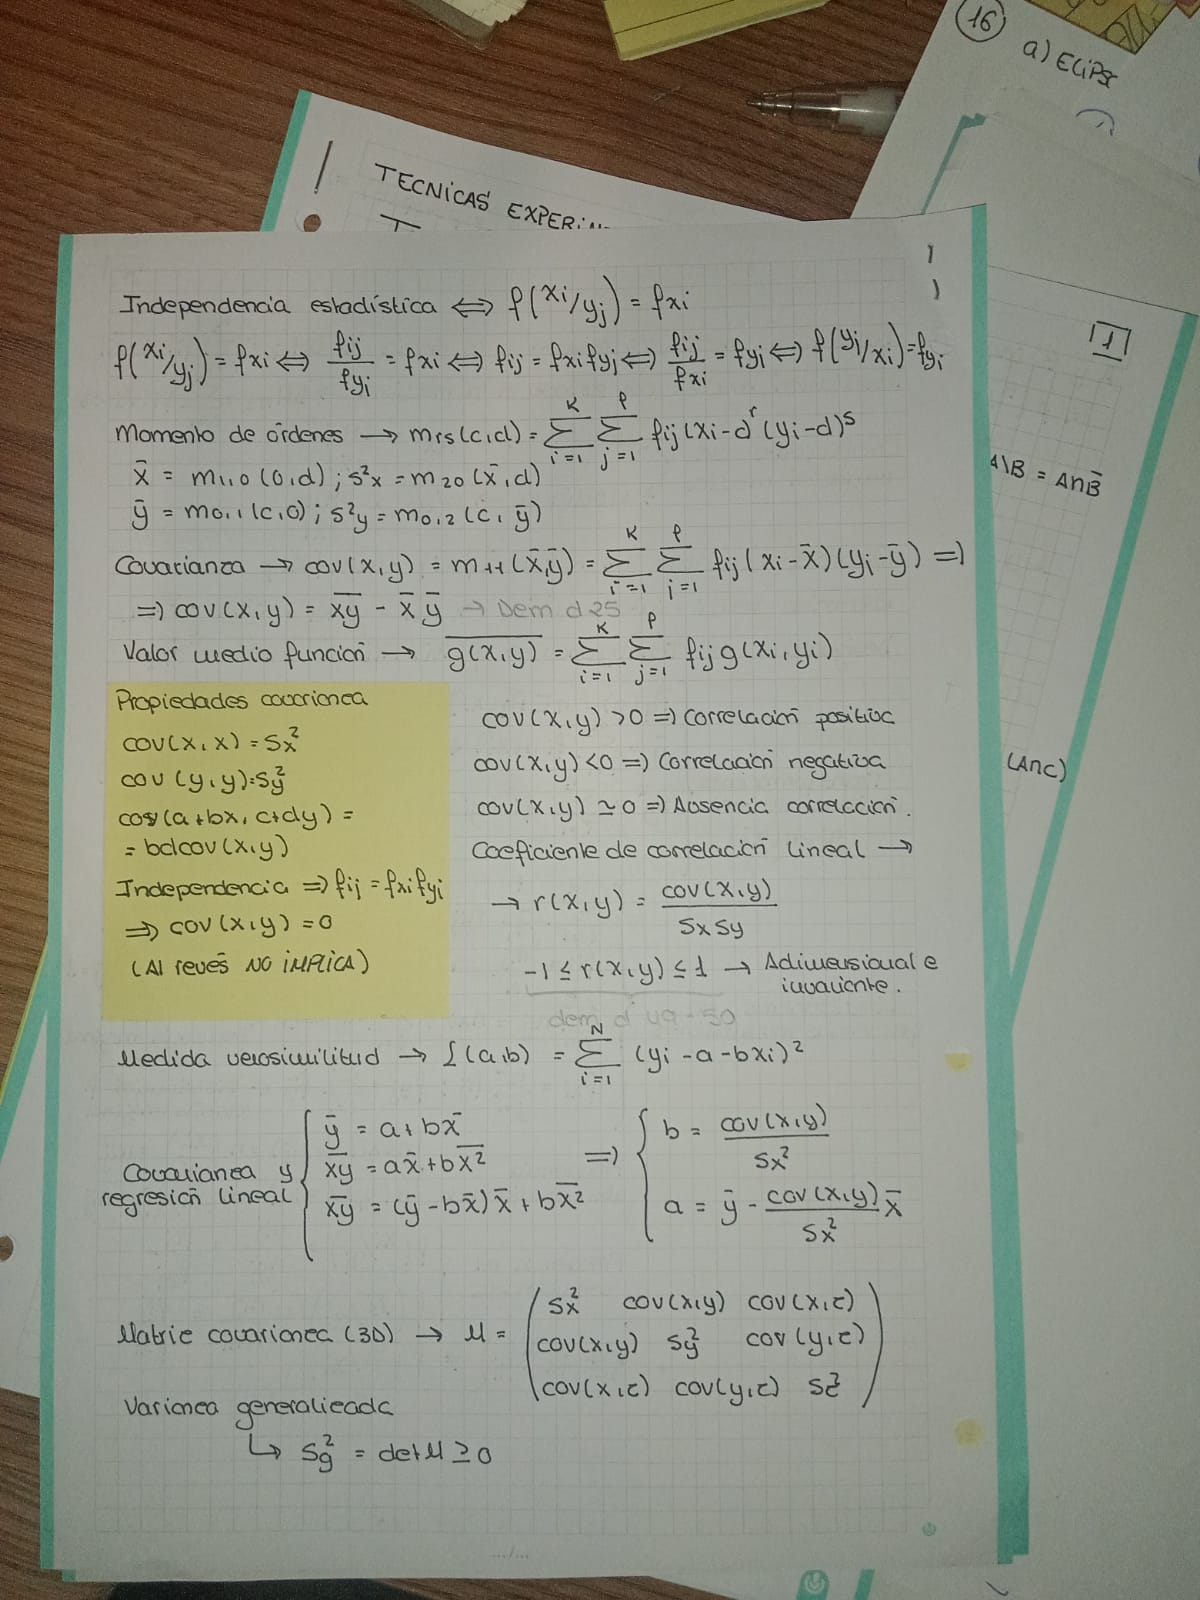 16
a) ELIPSE
TECNICAS EXPERIM
1
Independencia estadística ⟺ f(xi/yj) = fxi
f(xi/yj) = fxi ⟺ fij/fyi = fxi ⟺ fij = fxi fyj ⟺ fij/fxi = fyi ⟺ f(yi/xi) = fyi
Momento de órdenes → mrs(c,d) = Σ_{i=1}^{K} Σ_{j=1}^{P} fij(xi-c)^r (yi-d)^s
A\B = A∩B̄
x̄ = m1,0 (0,d) ; s²x = m20 (x̄,d)
ȳ = m0,1 (c,0) ; s²y = m0,2 (c, ȳ)
Covarianza → cov(x,y) = m11 (x̄,ȳ) = Σ_{i=1}^{K} Σ_{j=1}^{P} fij (xi-x̄)(yi-ȳ) ⇒
⇒ cov(x,y) = \overline{xy} - x̄ ȳ → Dem d 25
Valor medio función → \overline{g(x,y)} = Σ_{i=1}^{K} Σ_{j=1}^{P} fij g(xi,yi)
Propiedades covarianza
cov(x,x) = Sx²
cov(y,y) = Sy²
cov(a+bx, c+dy) =
= bdcov(x,y)
Independencia ⇒ fij = fxi fyi
⇒ cov(x,y) = 0
(Al revés NO IMPLICA)
cov(x,y) >0 ⇒ Correlación positiva
cov(x,y) <0 ⇒ Correlación negativa
cov(x,y) ≃ 0 ⇒ Ausencia correlación.
Coeficiente de correlación lineal →
→ r(x,y) = cov(x,y)/SxSy
-1 ≤ r(x,y) ≤ 1 → Adimensional e
invariante.
(A∩C)
Medida verosimilitud → L(a,b) = Σ_{i=1}^{N} (yi - a - bxi)²
Covarianza y
regresión lineal
ȳ = a + bx̄
\overline{xy} = ax̄ + b\overline{x²}
\overline{xy} = (ȳ - bx̄)x̄ + b\overline{x²}
⇒
b = cov(x,y)/Sx²
a = ȳ - cov(x,y)/Sx² x̄
Matriz covarianza (3D) → M =
Sx² cov(x,y) cov(x,z)
cov(x,y) Sy² cov(y,z)
cov(x,z) cov(y,z) Sz²
Varianza generalizada
↳ Sg² = det M ≥ 0